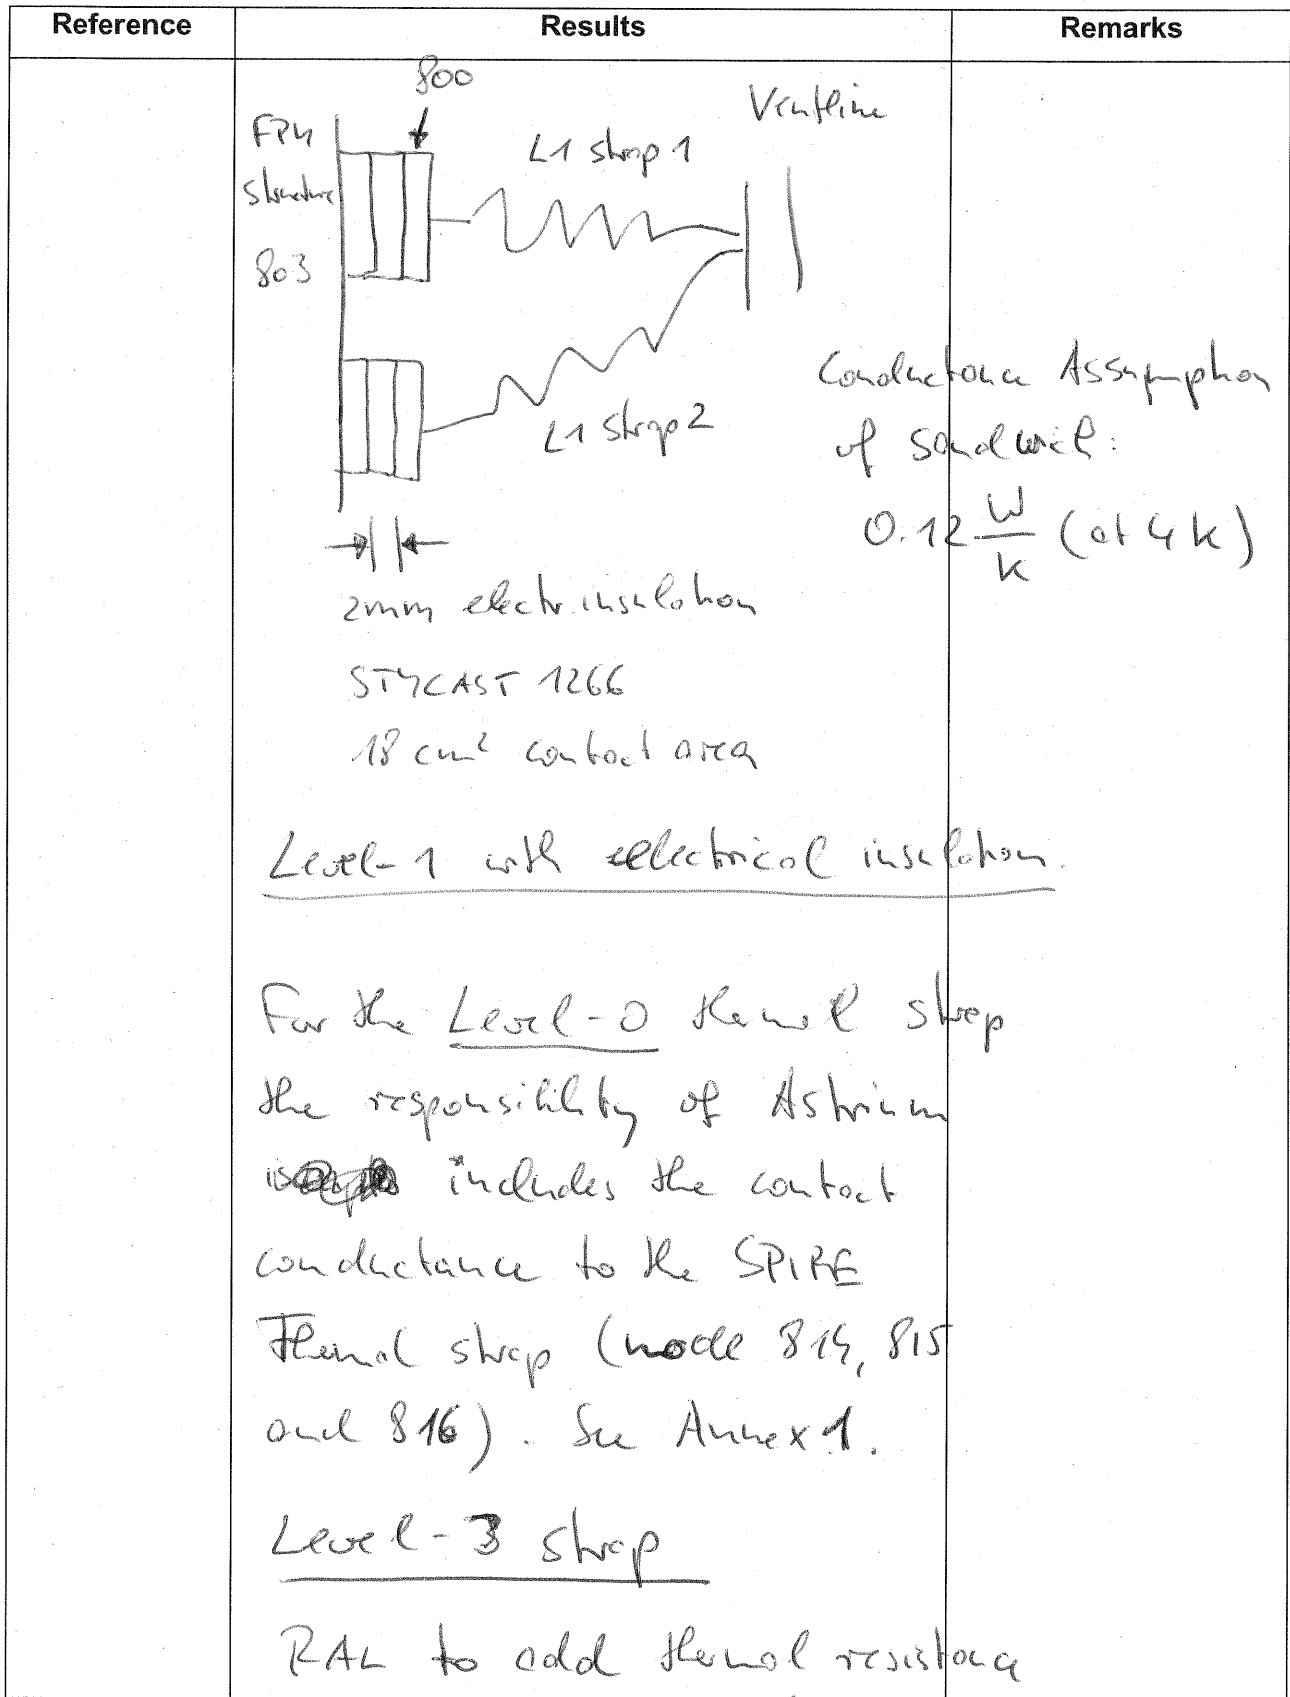 Reference Results Remarks
800
Ventline
FPU
L1 strap 1
structure
803
Conductance Assumption
L1 strap 2
of sandwich:
0.12 W/K (at 4 K)
2mm electr. insulation
STYCAST 1266
18 cm² contact area
Level-1 with electrical insulation.
For the Level-0 thermal strap
the responsibility of Astrium
is includes the contact
conductance to the SPIRE
Thermal strap (node 814, 815
and 816). See Annex 1.
Level-3 strap
RAL to add thermal resistance